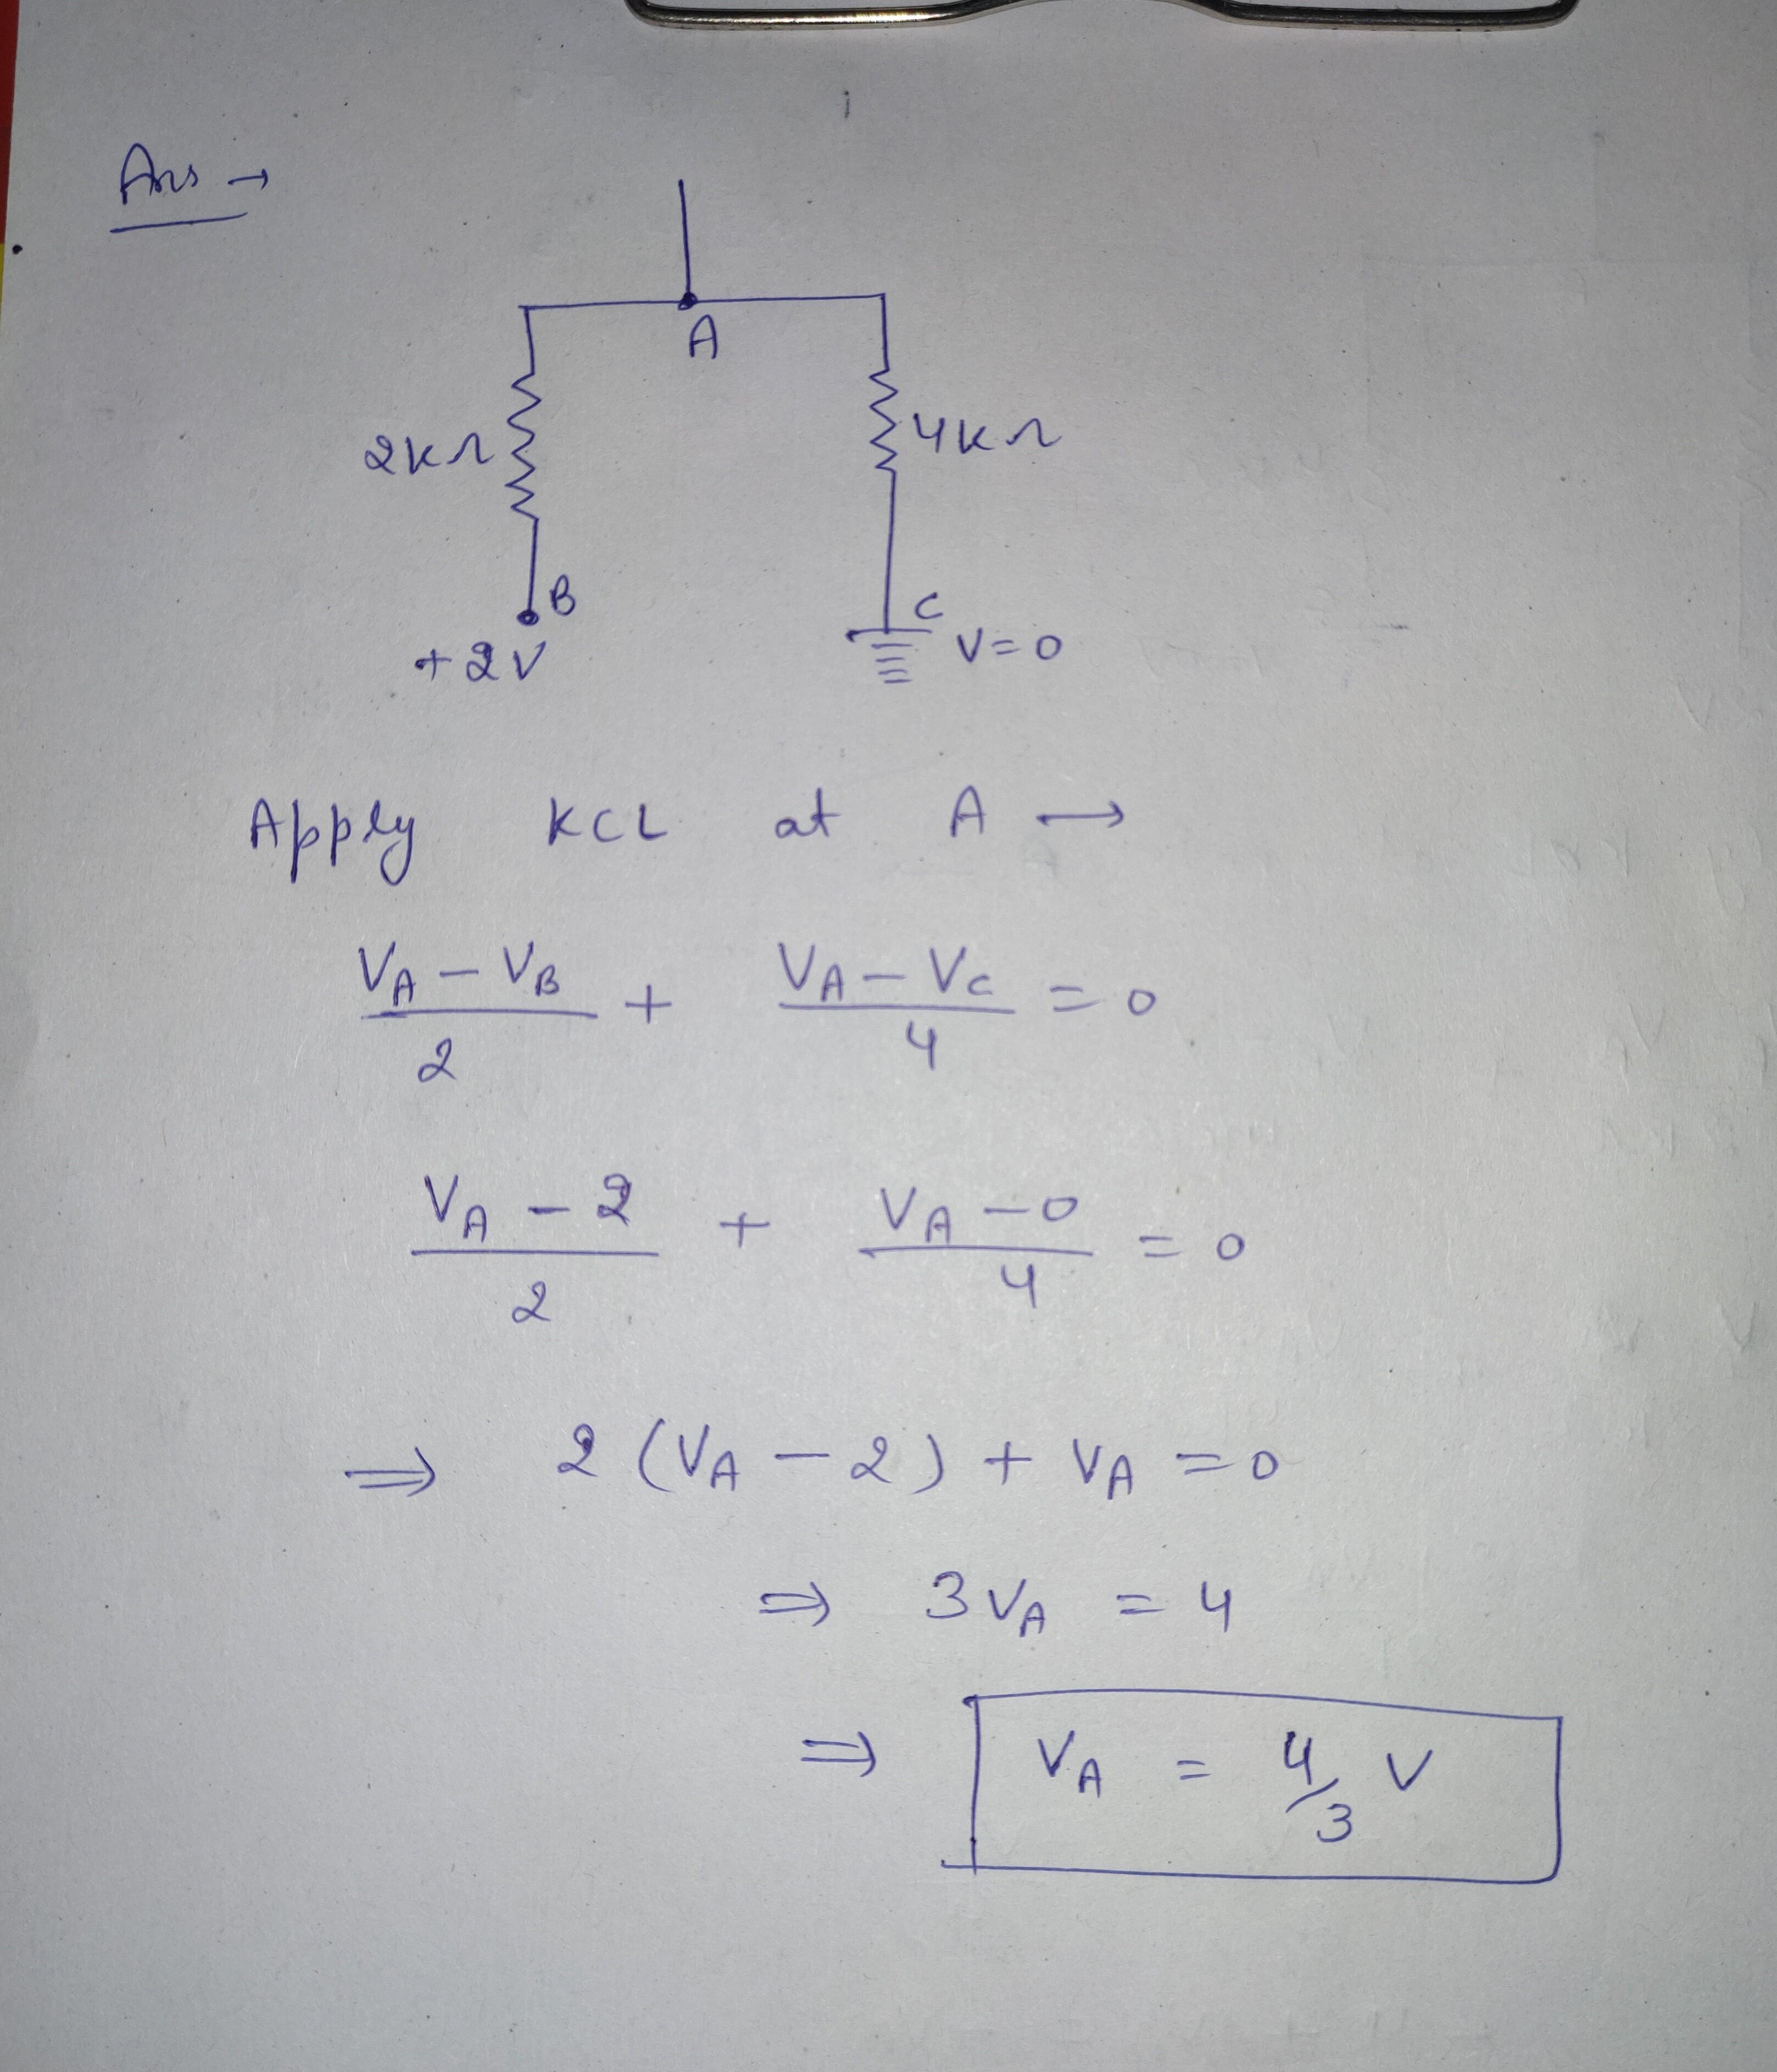 Ans →
A
2KΩ
4KΩ
B
C
+2V
V=0
Apply KCL at A →
(VA - VB)/2 + (VA - VC)/4 = 0
(VA - 2)/2 + (VA - 0)/4 = 0
⇒ 2(VA - 2) + VA = 0
⇒ 3VA = 4
⇒ VA = 4/3 V